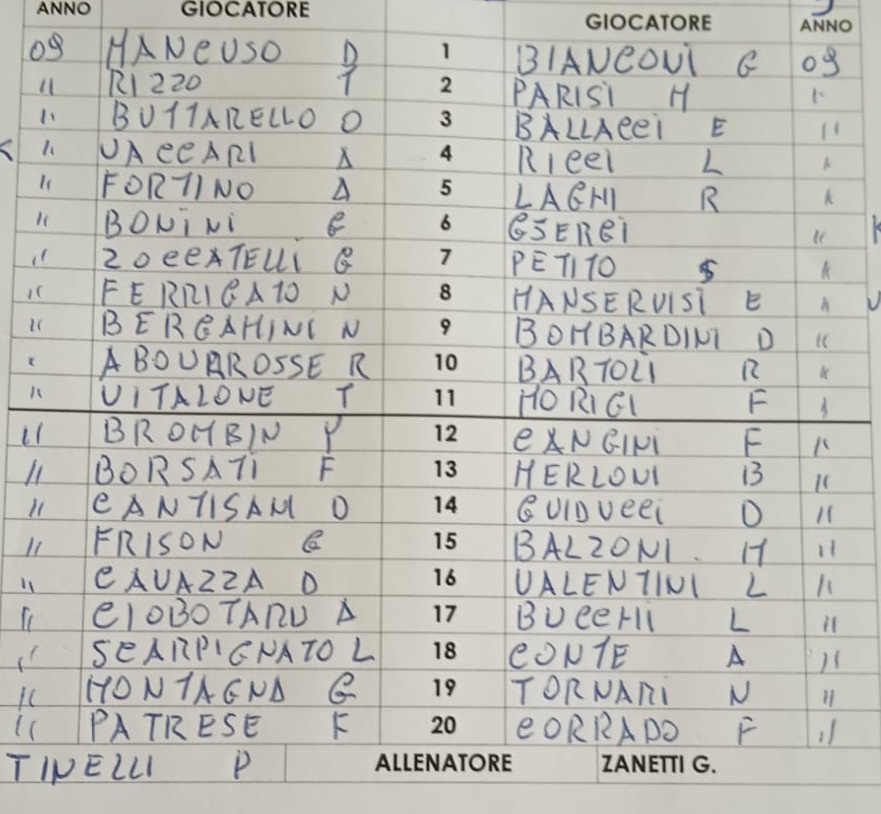 ANNO GIOCATORE GIOCATORE ANNO
09 MANCUSO D 1 BIANCONI G 09
" RIZZO T 2 PARISI M "
" BUTTARELLO O 3 BALLACCI E "
" VACCARI A 4 RICCI L "
" FORTINO A 5 LAGHI R "
" BONINI G 6 "
" ZOCCATELLI G 7 PETITO S "
" FERRIGATO N 8 MANSERVISI E "
" BERGAMINI N 9 BOMBARDINI D "
" R 10 BARTOLI R "
" VITALONE T 11 MORIGI F "
" BROMBIN Y 12 CANGINI F "
" BORSATI F 13 MERLONI B "
" CANTISANI O 14 GUIDUCCI D "
" FRISON G 15 BALZONI M "
" CAVAZZA D 16 VALENTINI L "
" CIOBOTARU A 17 BUCCHI L "
" SCARPIGNATO L 18 CONTE A "
" MONTAGNA G 19 TORNARI N "
" PATRESE F 20 CORRADO F "
TINELLI P ALLENATORE ZANETTI G.